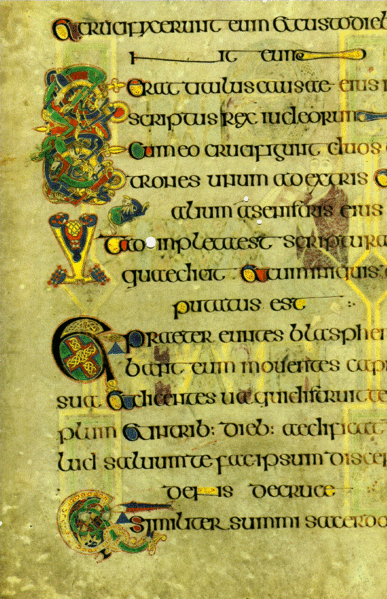 & crucifixerunt eum & custodieb
it eum
Erat titulus causae eius
scriptus rex iudeorum
& cum eo crucifigunt duos
trones unum adextris &
alium asenistris eius
impletaest scriptura
quae dicit & cum iniquis
putatus est
praeter euntes blasphe
bant eum mouentes capi
sua & dicentes ua qui distruit te
plum & in trib: dieb: aedificat
saluum te fac ipsum discen
decruce
Similiter summi sacerdo